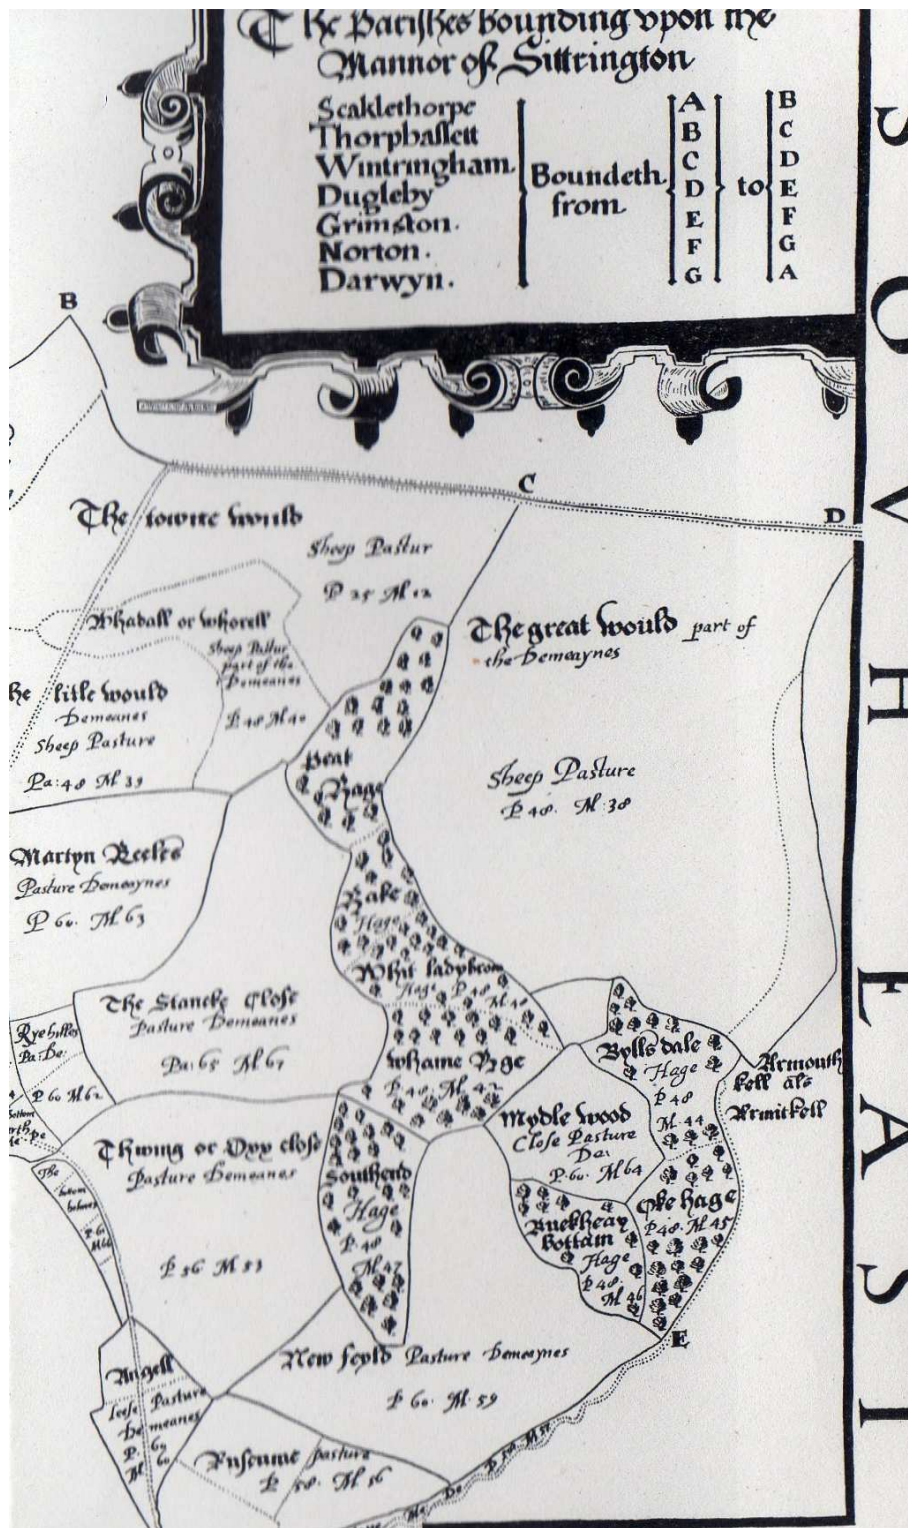 The Parishes bounding vpon the
Mannor of Sittrington
Scaklethorpe
Thorpbassett
Wintringham
Dugleby
Grimston.
Norton.
Darwyn.
Boundeth
from
A
B
C
D
E
F
G
to
B
C
D
E
F
G
A
SOVTH EAST
B
C
D
The towne would
Sheep Pastur
P 25 M 12
Whadall or whorell
Sheep Pastur
part of the
Demeanes
P 48 M 40
The great would part of
the Demeaynes
Sheep Pasture
P 48. M 38
litle would
Demeanes
Sheep Pasture
Pa: 48 M 39
Peat
Hage
Martyn Keeles
Pasture Demeaynes
P 60. M 63
Hage
Whit ladybrom
Hage P 48
M 48
The Stancke Close
Pasture Demeanes
Pa: 65 M 61
Pa: De:
P 60 M 62
bottom
Whame Hge
P 48. M 42
Bylls dale
Hage
P 48
M 44
Armouth
kell als
Armitkell
Mydle wood
Close Pasture
De:
P 60. M 64
Thwing or Oxx close
Pasture Demeanes
P 56 M 53
Southend
Hage
P 48
M 47
The
bottom
Oke hage
P 48. M 45
Buckheay
bottam
Hage
P 48.
M 46
E
New feyld Pasture Demeaynes
P 60. M 59
Angell
leese Pasture
Demeanes
P. 60
M. 60
Ruseume pasture
P 58. M 56